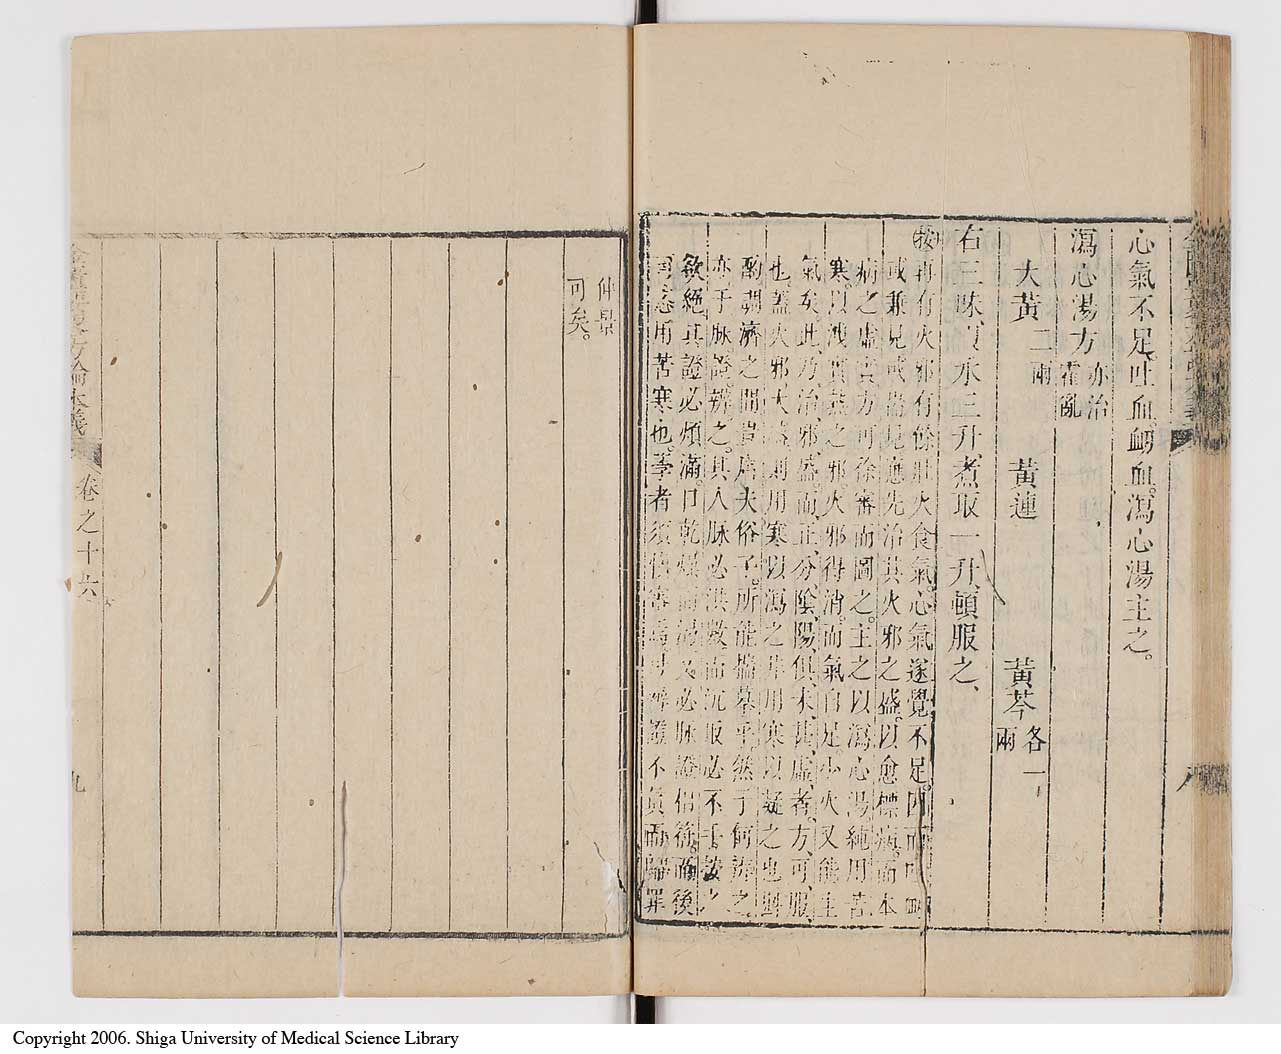 心氣不足、吐血、衄血。瀉心湯主之。
瀉心湯方 亦治霍亂
大黃二兩 黃連 黃芩各一兩
右三味、以水三升、煮取一升、頓服之、
按再有火邪有餘壯火食氣。心氣遂覺不足。因而吐衄
或兼見或耑見應先治其火邪之盛。以愈標病。而本
病之虛實方可徐審而圖之。主之以瀉心湯純用苦
寒。以洩實熱之邪火邪得消。而氣自足。少火又能生
氣矣。此乃治邪盛而正分、陰陽俱未甚虛者、方可服
也。蓋火邪大盛則用寒以瀉之非用寒以凝之也斟
酌調濟之間豈庸夫俗子所能揣摹乎。然于何辨之
亦于脉證辨之。其人脉必洪數而沉取必不于按之
欲絕。其證必煩滿。口乾燥而渴又必脉證侶符。而後
可恣用苦寒也。學者須倍審焉可辨證不真而歸罪
仲景
可矣。
金匱要畧方論本義
卷之十六
九